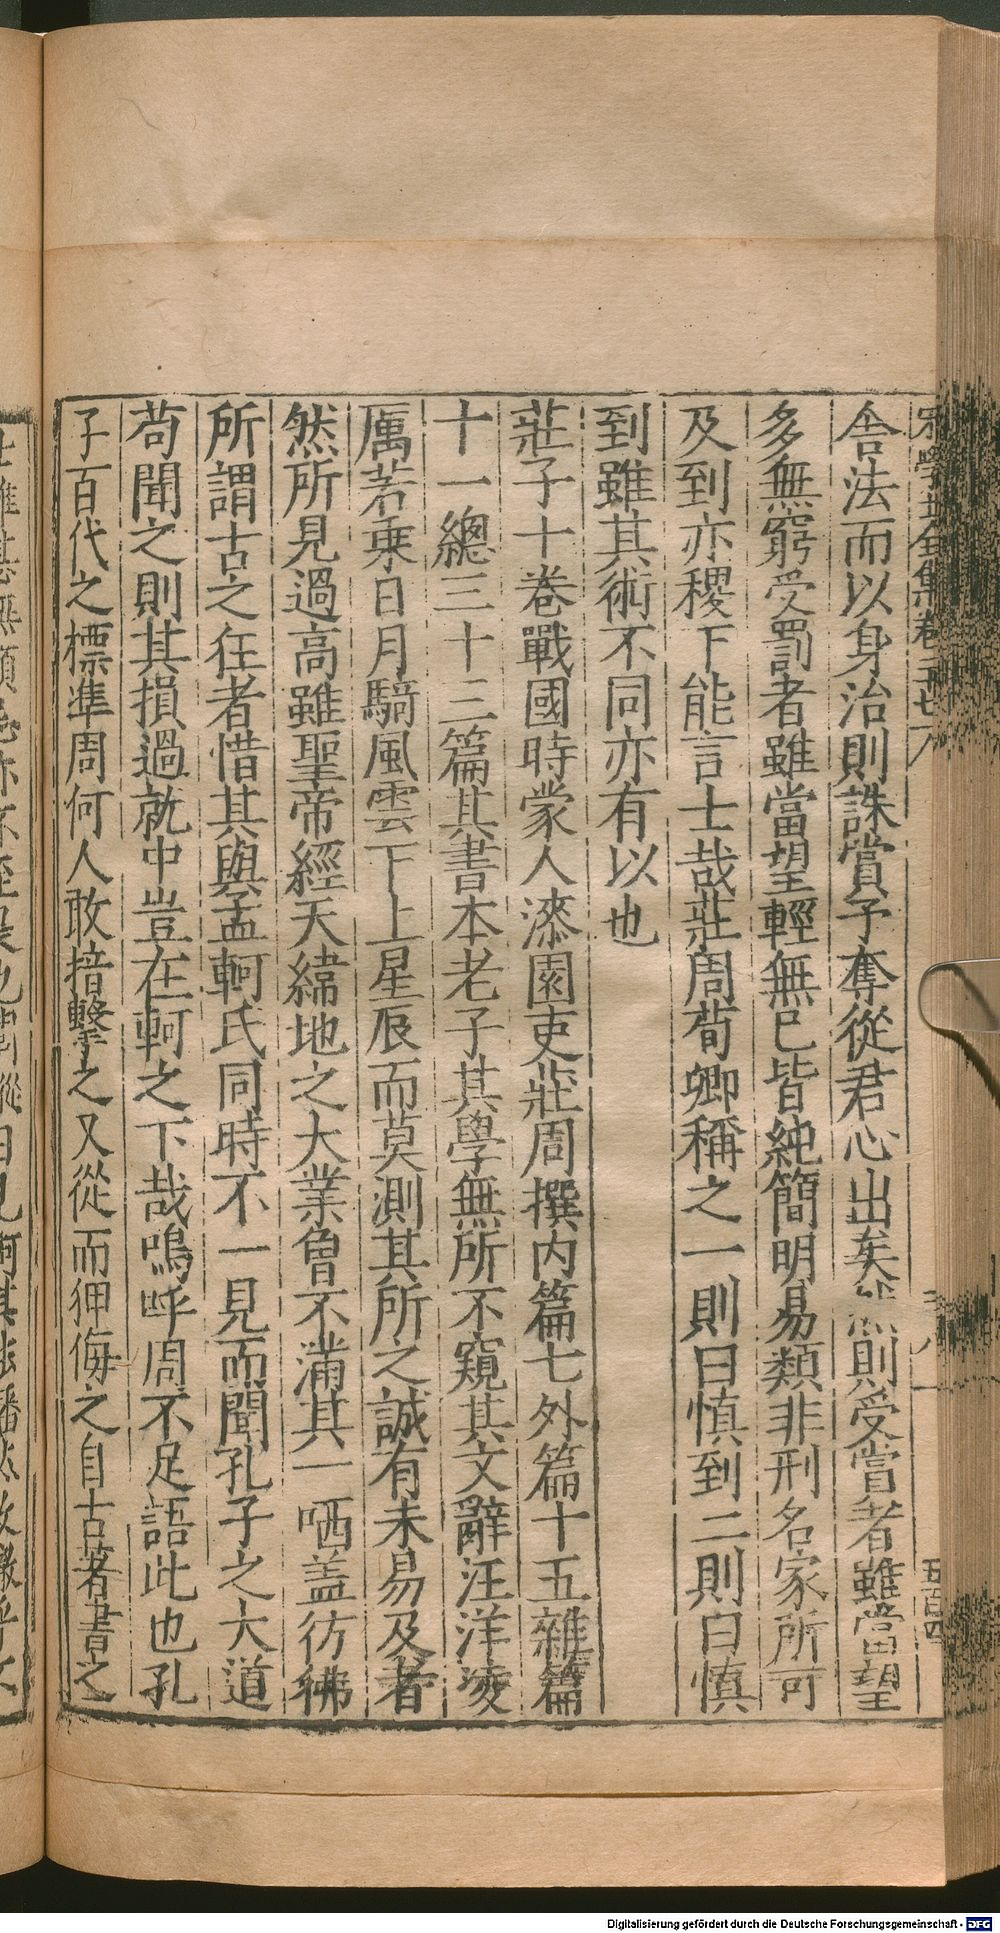 宋學士全集卷二十七
舍法而以身治則誅賞予奪從君心出矣然則受賞者雖當望
多無窮受罰者雖當望輕無已皆純簡明易類非刑名家所可
及到亦稷下能言士哉莊周荀卿稱之一則曰慎到二則曰慎
到雖其術不同亦有以也
莊子十卷戰國時蒙人漆園吏莊周撰内篇七外篇十五雜篇
十一總三十三篇其書本老子其學無所不窺其文辭汪洋凌
厲若乗日月騎風雲下上星辰而莫測其所之誠有未易及者
然所見過高雖聖帝經天緯地之大業曾不滿其一哂盖彷彿
所謂古之狂者惜其與孟軻氏同時不一見而聞孔子之大道
苟聞之則其損過就中豈在軻之下哉嗚呼周不足語此也孔
子百代之標準周何人敢掊擊之又從而狎侮之自古著書之
Digitalisierung gefördert durch die Deutsche Forschungsgemeinschaft - DFG